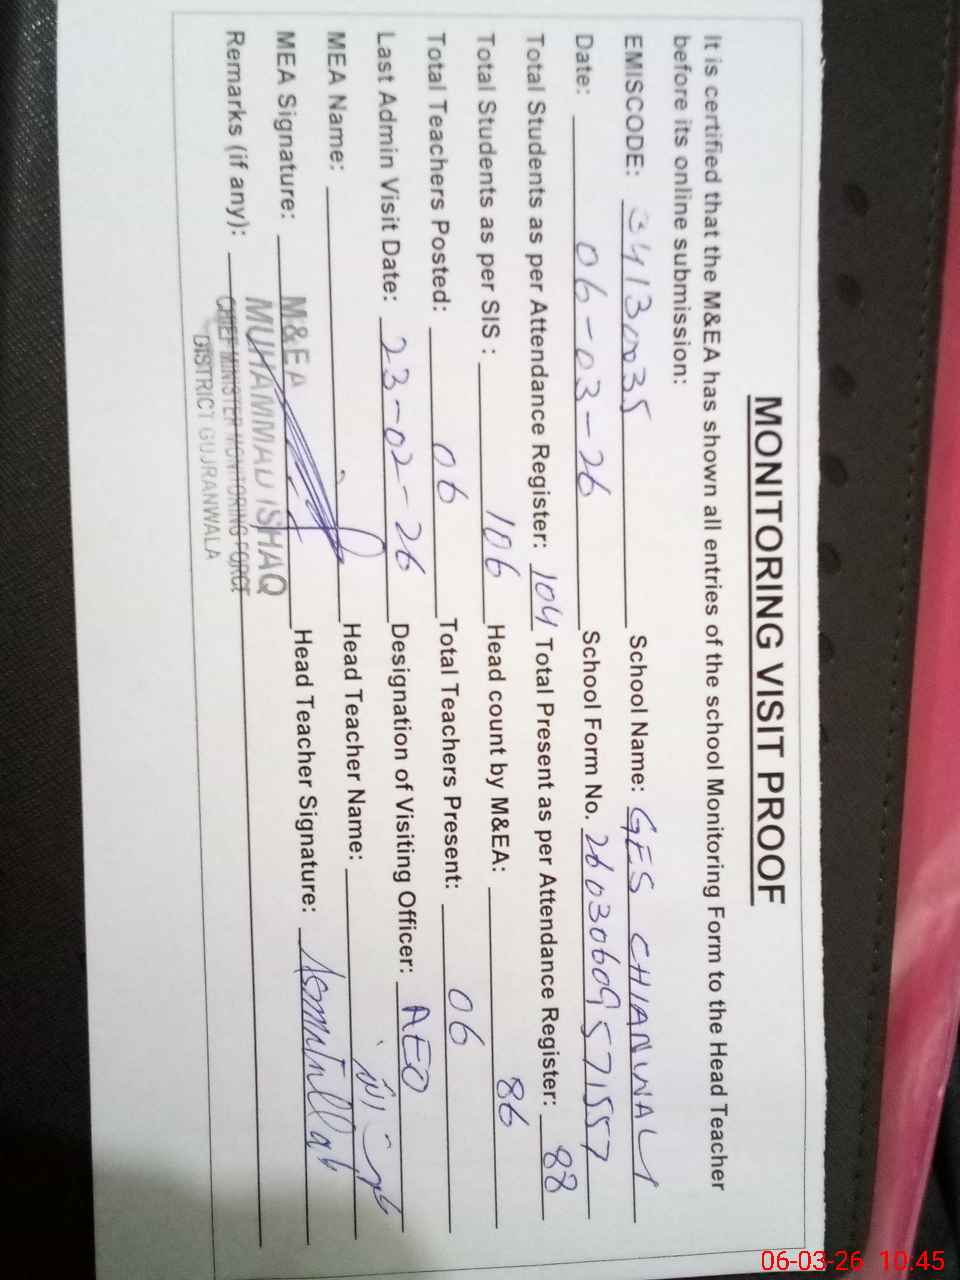 MONITORING VISIT PROOF
It is certified that the M&EA has shown all entries of the school Monitoring Form to the Head Teacher
before its online submission:
EMISCODE: 34130035 School Name: GES CHIANWALI
Date: 06-03-26 School Form No. 26030609571557
Total Students as per Attendance Register: 104 Total Present as per Attendance Register: 88
Total Students as per SIS : 106 Head count by M&EA: 86
Total Teachers Posted: 06 Total Teachers Present: 06
Last Admin Visit Date: 23-02-26 Designation of Visiting Officer: AEO
MEA Name: Head Teacher Name:
MEA Signature: Head Teacher Signature:
Remarks (if any):
M&EA
MUHAMMAD ISHAQ
CHIEF MINISTER MONITORING FORCE
DISTRICT GUJRANWALA
06-03-26 10.45